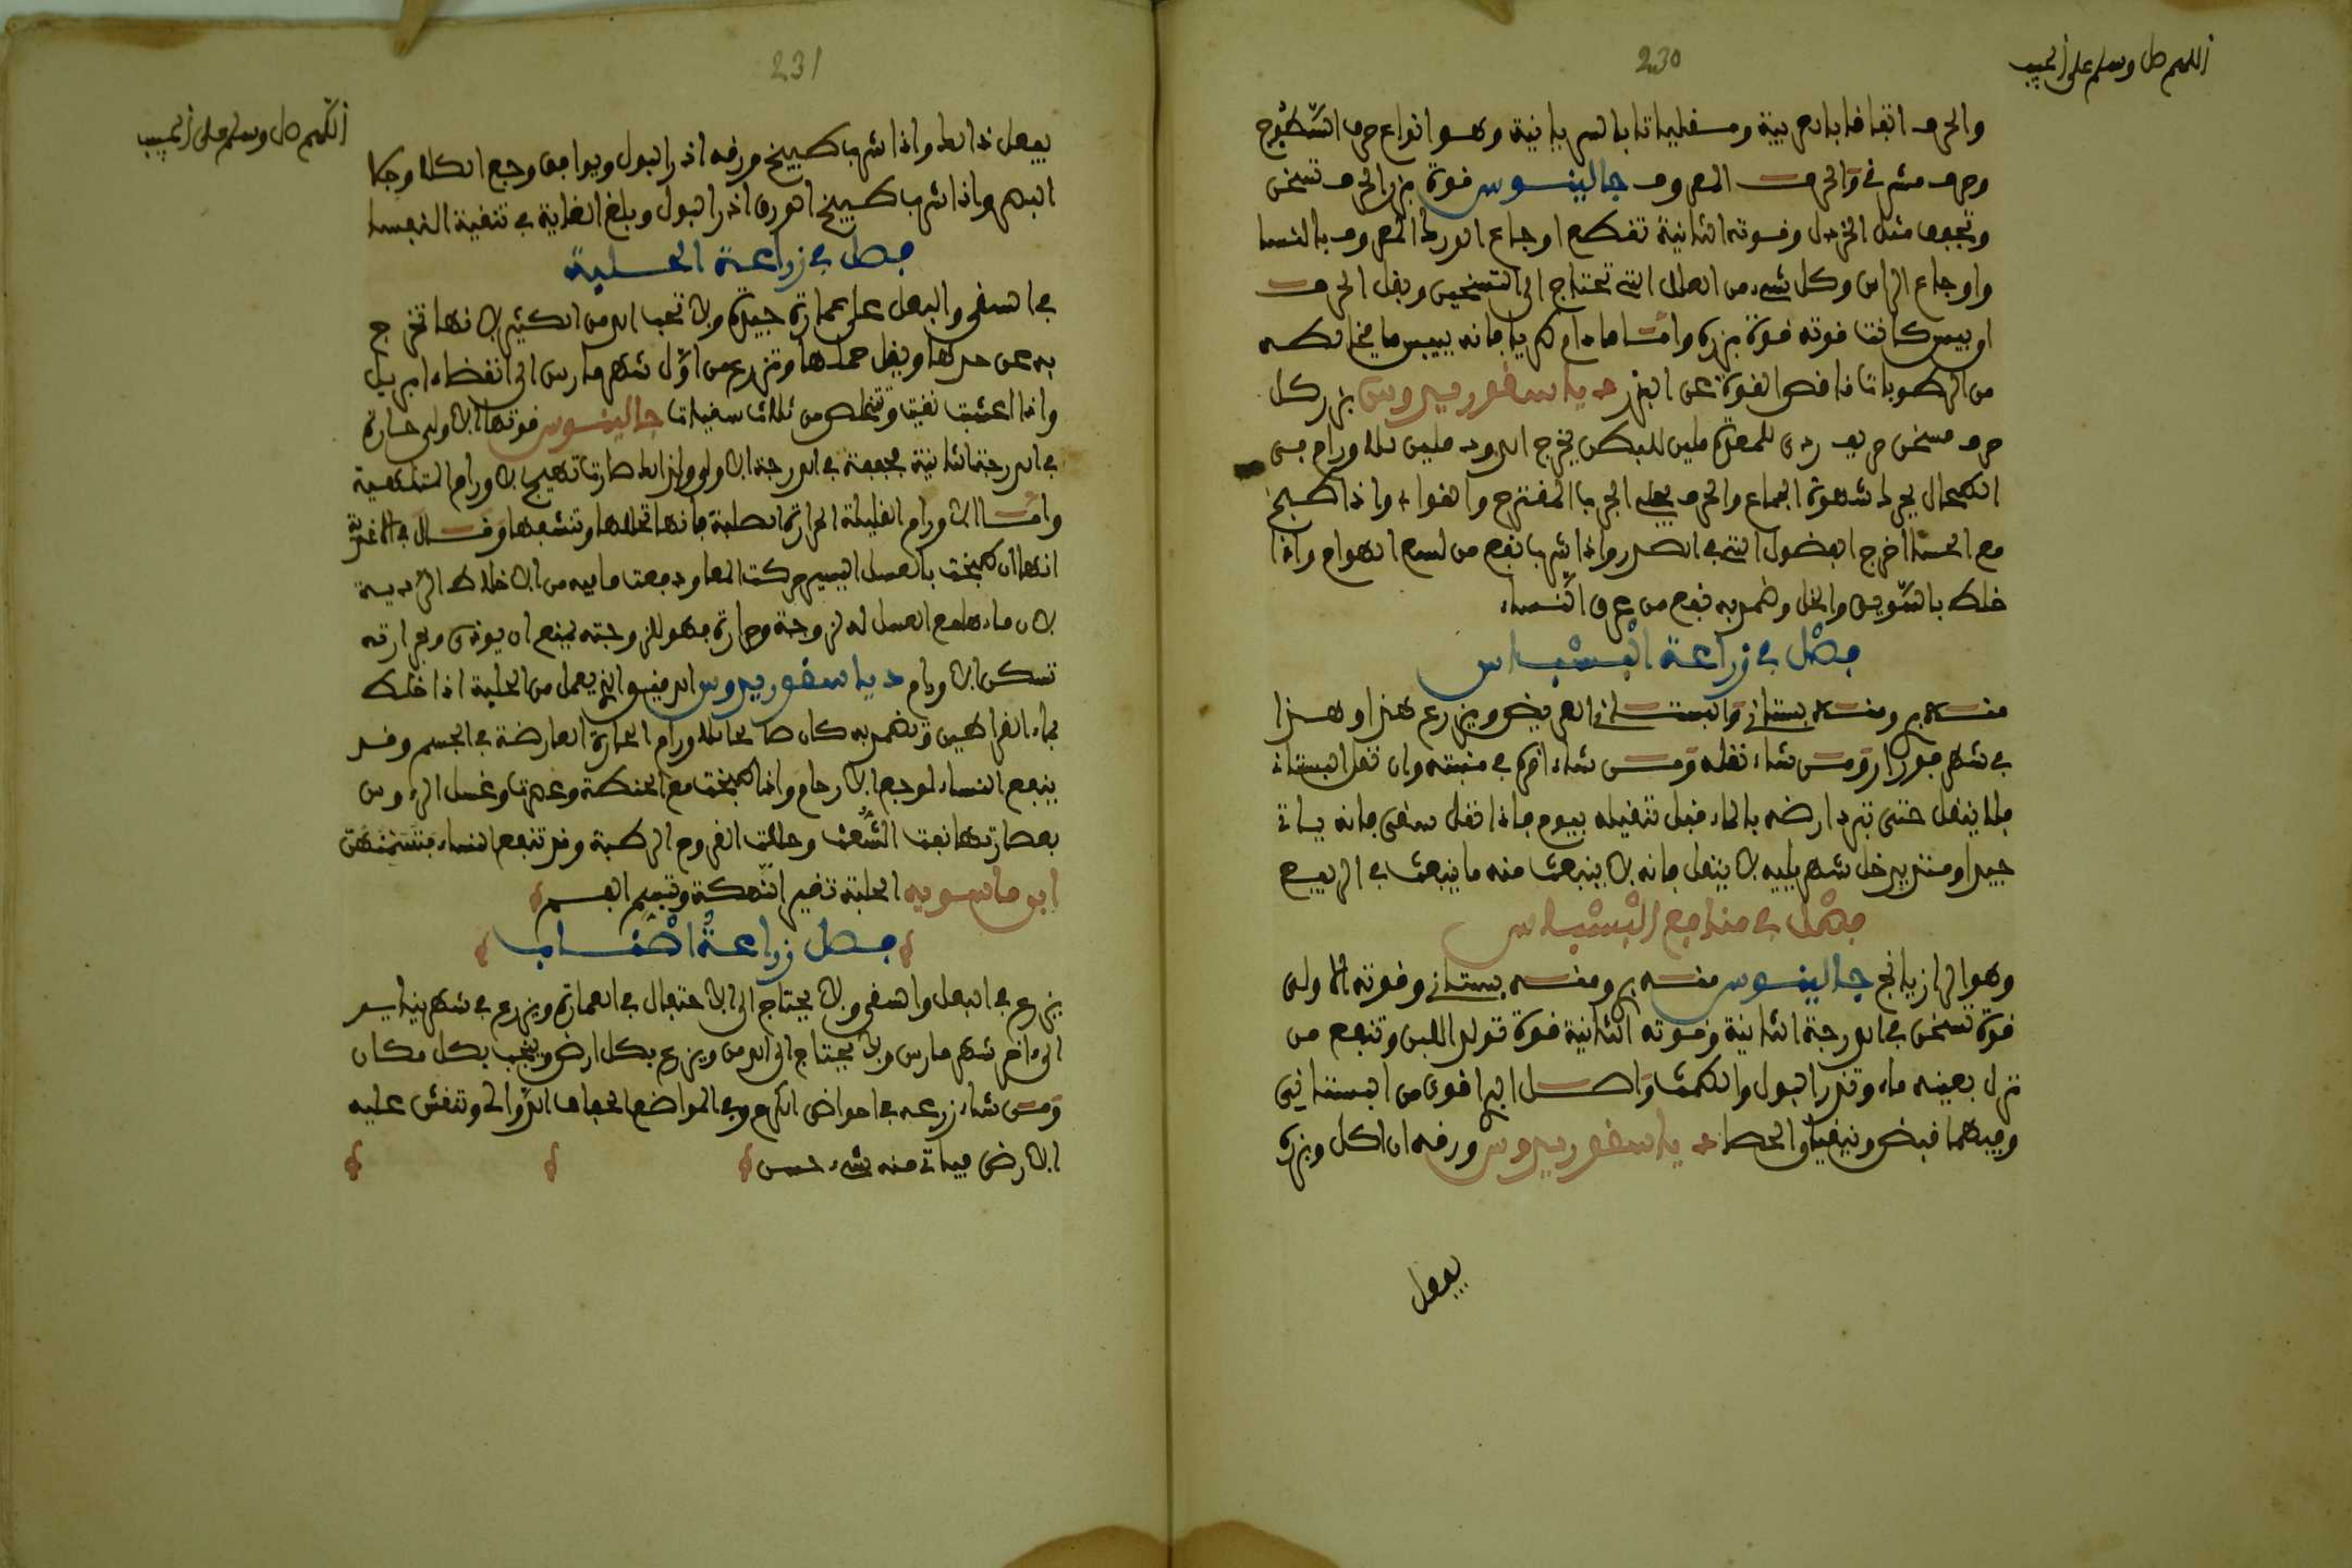 اللهم صل وسلم على الحبيب
230
والحرف اتفاقا بالعربية ومسقلياتا بالسريانية وهو انواع حرف السطوح
وحرف مشرقي والحرف المعروف جالينوس قوة بزر الحرف تسخن
وتجفف مثل الخردل وقوته الثانية تقطع اوجاع الورك المعروف بالنسا
واوجاع الراس وكل شيء من العلل التي تحتاج الى التسخين وبقل الحرف
او يبس كانت قوته قوة بزره واما ما دام طريا فانه يبيس ما يخالطه
من الرطوبات ناقص القوة عن البزر دياسقوريدوس بزر كل
حرف مسخن حريف ردى للمعدة ملين للبطن يخرج الدود ملين للاورام في
الطحال يحرك شهوة الجماع والحرف يجلي الجرب المتقرح والقواء واذا طبخ
مع الحسا اخرج الفضول التي في الصدر واذا شرب نفع من لسع الهوام واذا
خلط بالسويق والخل وضمد به نفع من عرق النساء
فصل في زراعة البسباس
منه بري ومنه بستاني والبستاني العريض ويزرع هذا وهذا
في شهر فورار ومن شاء نقله ومن شاء اقره في منبته وان نقل البستاني
فلا ينقل حتى تبرد ارضه بالماء قبل تنقيله بيوم فاذا نقل سقي فانه ياتي
جيدا ومتى يدخل شهر يليه لا ينقل فانه لا ينبعث منه ما ينبعث في الربيع
فصل في منافع البسباس
وهو الرازيانج جالينوس منه بري ومنه بستاني وقوته الاولى
قوة تسخن في الدرجة الثانية وقوته الثانية قوة تولد اللبن وتنفع من
نزل بعينه ماء وتدر البول والطمث واصل البرا قوى من البستاني
وفيهما قبض وينفيان الحصا دياسقوريدوس ورقه ان اكل وبزره
يفعل
اللهم صل وسلم على الحبيب
231
يفعل ذالك واذا شرب طبيخ ورقه ادر البول ويوافق وجع الكلا وجلا
البهر واذا شرب طبيخ العروق ادر البول وبلغ الغاية في تنقية النفسا
فصل في زراعة الحلبة
في السقى والبعل على عمارة جيدة ولا تحب الدمن الكثير لانها تخرج
به عن حدها ويقل حملها وتزرع من اول شهر مارس الى انقضاء ابريل
واذا اعشبت نقيت وتتخلص من ثلاث سقيات جالينوس قوتها الاولى حارة
في الدرجة الثانية مجففة في الدرجة الاولى ولذالك صارت تهيج الاورام الملتهبة
واما الاورام القليلة الحرارة الصلبة فانها تحللها وتشفيها وقال في الاغذية
انها ان طبخت بالعسل اليسير حركت المعا ودفعت ما فيه من الاخلاط الردية
لان ماءها مع العسل له لزوجة وحرارة فهو للزوجته يمنع ان يوذى وبحرارته
تسكن الاورام دياسقوريدوس الدقيق الذي يعمل من الحلبة اذا خلط
بماء القراطين وتضمد به كان صالحا للاورام الحارة العارضة في الجسم وقد
ينفع النساء لوجع الارحام واذا طبخت مع الحنطة وعصرت وغسل الرءوس
بعصارتها نفعت الشعر وحللت القروح الرطبة وقد تنفع النساء
ابو ماسويه الحلبة تغير النكهة وتبصم الفم
فصل زراعة العناب
يزرع في البعل والسقى ولا يحتاج الى الاحتفال في العمارة ويزرع في شهر يناير
الى ءاخر شهر مارس ولا يحتاج الى الدمن ويزرع بكل ارض وينجب بكل مكان
ومن شاء زرعه في احواض الكرم وفي المواضع الجفاف الدوالي وتنقش عليه
الارض فياتي منه شيء حسن